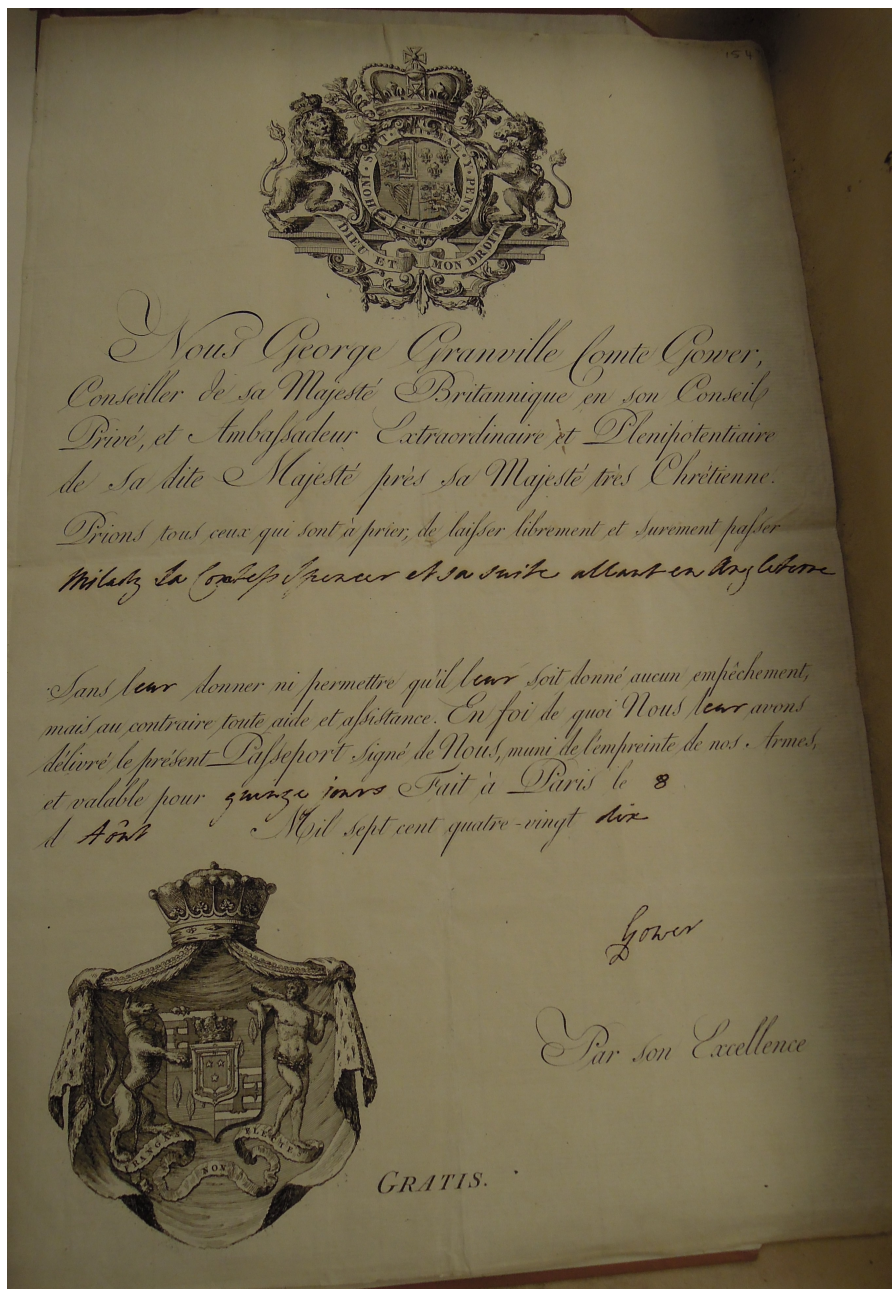 154
HONI · SOIT · MAL · Y · PENSE
DIEU ET MON DROIT
Nous George Granville Comte Gower,
Conseiller de sa Majesté Britannique en son Conseil
Privé, et Ambaſsadeur Extraordinaire et Plenipotentiaire
de Sa dite Majesté près sa Majesté très Chrétienne.
Prions tous ceux qui sont à prier, de laiſser librement et surement paſser
Milady La Comteſs Spencer et sa suite allant en Angleterre
Sans leur donner ni permettre qu'il leur soit donné aucun empêchement,
mais au contraire toute aide et aſsistance. En foi de quoi Nous leur avons
délivré le présent Paſseport signé de Nous, muni de l'empreinte de nos Armes,
et valable pour quinze jours Fait à Paris le 8
d Aôut Mil sept cent quatre-vingt dix
Gower
Par son Excellence
FRANGAS NON FLECTES
GRATIS.